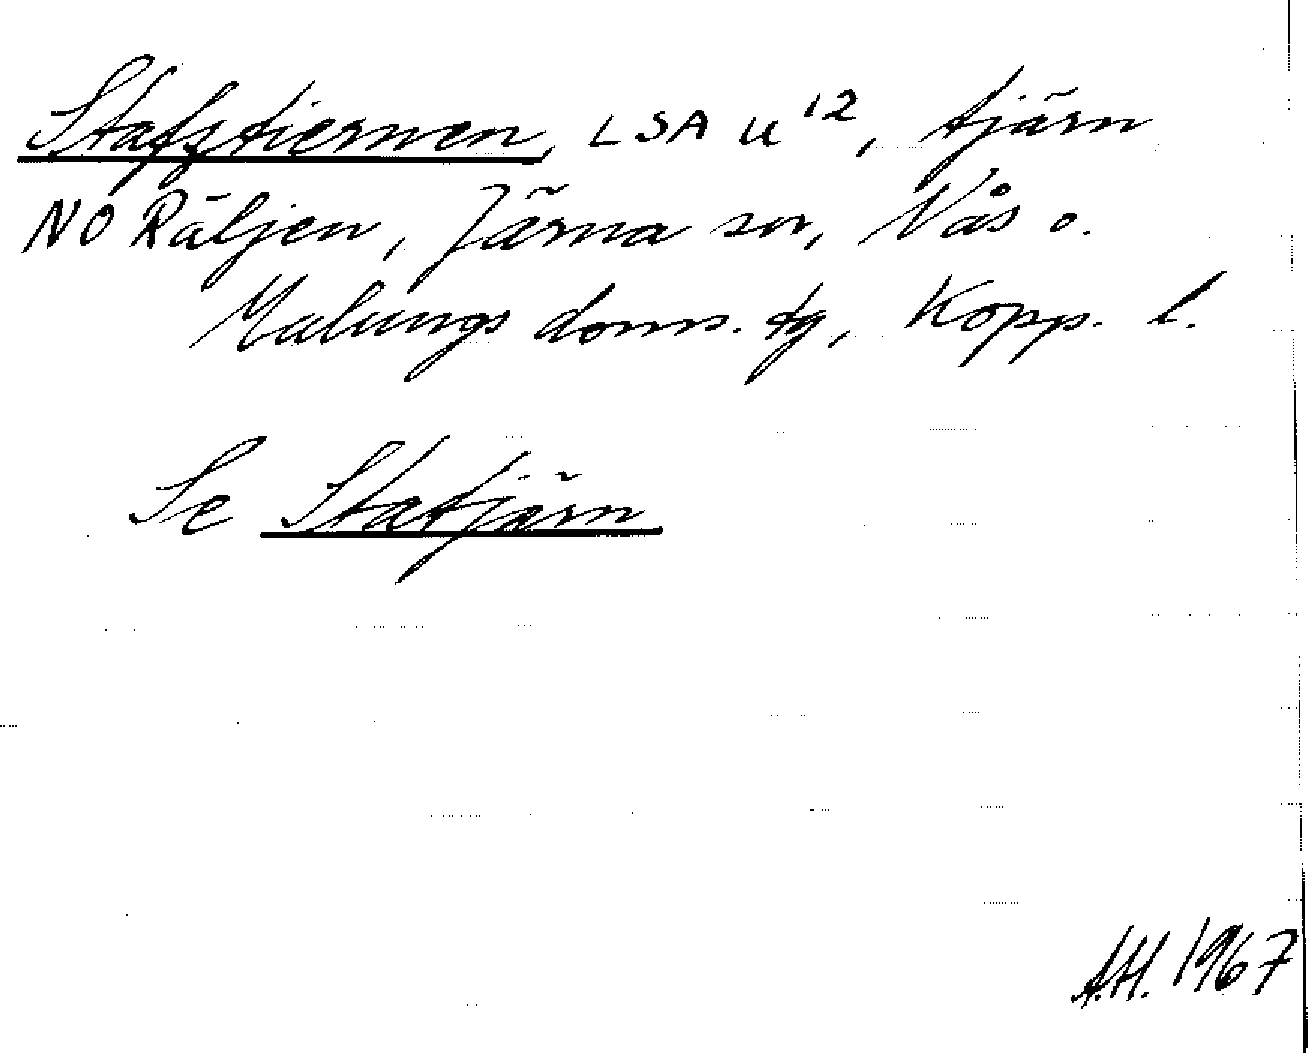 Stafztiernen, LSA U¹², tjärn
NO Räljen, Järna sn, Nås o.
Malungs doms. tg, Kopp. l.
Se Statjärn
A.H. 1967